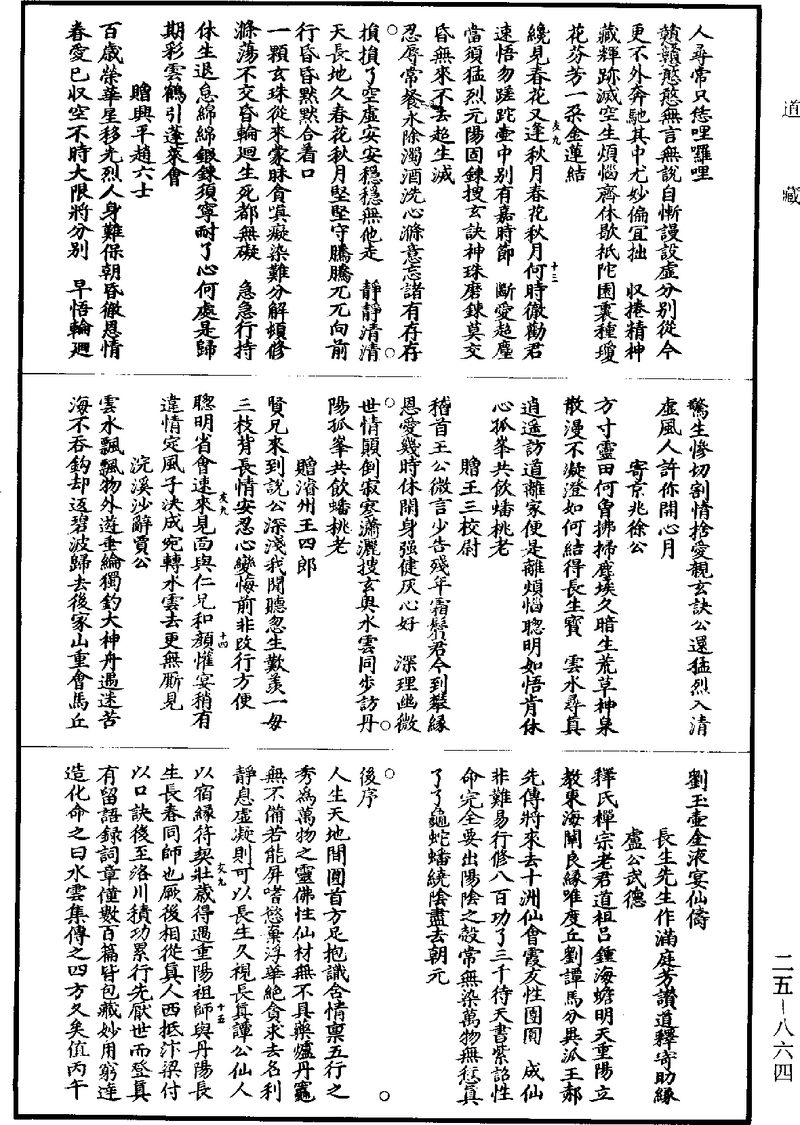 道藏
人尋常只恁哩囉哩
贛贛憨憨無言無說自慚謾設虛分別從今
更不外奔馳其中尤妙偏宜拙　収捲精神
藏輝跡滅空生煩惱齊休歇祇陀園裏種瓊
花芬芳一朵金蓮結
纔見春花又逢秋月春花秋月何時徹勸君
速悟勿蹉跎壺中別有嘉時節　斷愛超塵
當須猛烈元陽固鍊搜玄訣神珠磨鍊莫交
昏無來不去超生滅
忍辱常餐永除濁酒洗心滌意忘諸有存存
損損了空虛安安穩穩無他走　靜靜清清
天長地久春花秋月堅堅守騰騰兀兀向前
行昏昏默默合着口
一顆玄珠從來蒙昧貪嗔癡染難分解頓修
滌蕩不交昏輪迴生死都無礙　急急行持
休生退怠綿綿鍛鍊須寧耐了心何處是歸
期彩雲鶴引蓬萊會
贈興平趙六士
百歲榮華星移光烈人身難保朝昏徹恩情
春愛已収空不時大限將分別　早悟輪迴
驚生慘切割情捨愛親玄訣公還猛烈入清
虛風人許你開心月
寄京兆徐公
方寸靈田何曾拂掃塵埃久暗生荒草神泉
散漫不凝澄如何結得長生寶　雲水尋真
逍遥訪道離家便是離煩惱聰明如悟肯休
心孤峯共飲蟠桃老
贈王三校尉
稽首王公微言少告殘年霜鬢君今到攀緣
恩愛幾時休閑身强健灰心好　深理幽微
世情顛倒寂寥瀟灑搜玄奧水雲同步訪丹
陽孤峯共飲蟠桃老
贈濬州王四郎
賢兄來到說公深淺我聞聽忽生歎羡一母
三枝背長情安忍心變悔前非改行方便
聰明省會速來見面與仁兄和顔懽宴稍有
違情定風子決成宛轉水雲去更無厮見
浣溪沙辭賈公
雲水飄飄物外遊垂綸獨釣大神舟遇迷苦
海不吞鈎却返碧波歸去後家山重會馬丘
劉玉壺金液宴仙儔
長生先生作滿庭芳讚道釋寄助緣
盧公武德
釋氏禪宗老君道祖吕鍾海蟾明天重陽立
教東海闡良緣唯度丘劉譚馬分異派王郝
先傳將來去十洲仙會霞友性團圓　成仙
非難易行修八百功了三千待天書紫詔性
命完全要出陽陰之殼常無染萬物無愆真
了了龜蛇蟠繞陰盡去朝元
後序
人生天地間圓首方足抱識含情禀五行之
秀爲萬物之靈佛性仙材無不具藥爐丹竈
無不備若能屏嗜慾棄浮華絶貪求去名利
靜息虛凝則可以長生久視長真譚公仙人
以宿緣符契壯歲得遇重陽祖師與丹陽長
生長春同師也厥後相從真人西抵汴梁付
以口訣後至洛川積功累行先厭世而登真
有留語録詞章僅數百篇皆包藏妙用窮達
造化命之曰水雲集傳之四方久矣值丙午
亥九
十三
亥九
十四
亥九
十五
二五－八六四